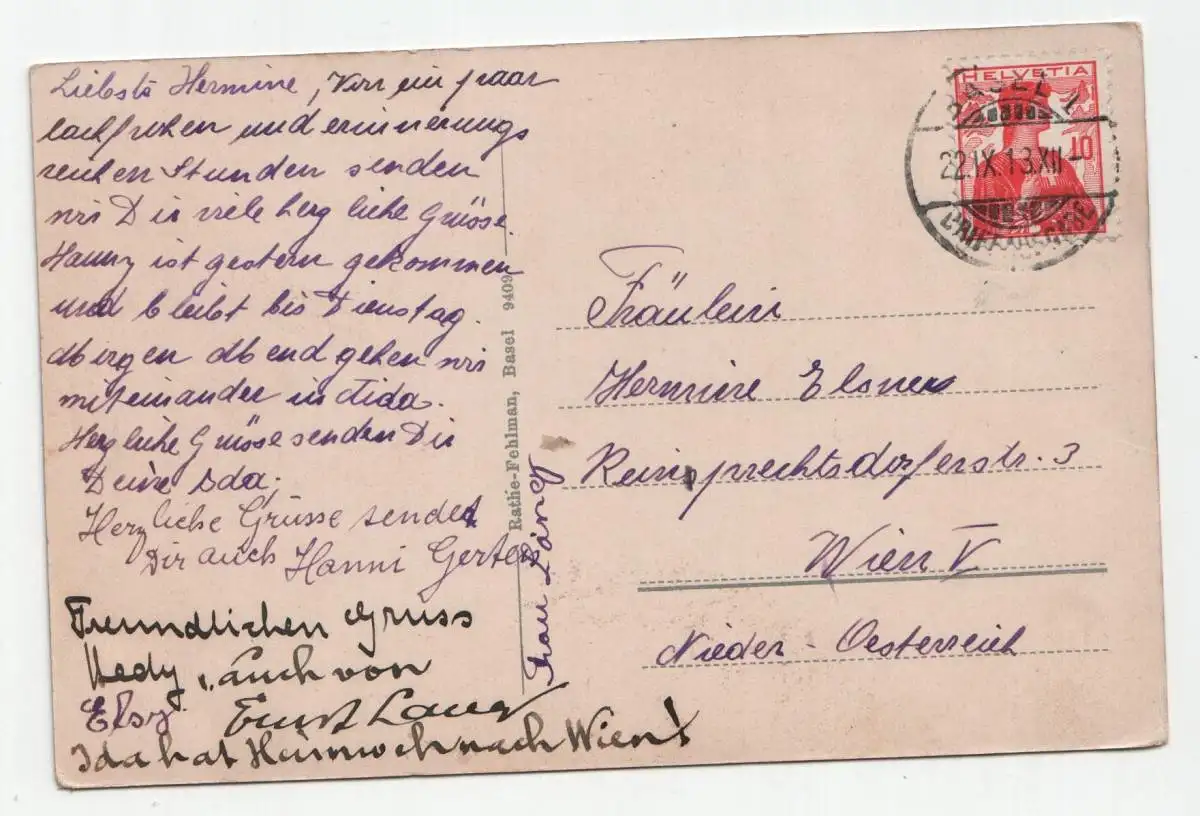 Liebste Hermine, Von ein paar
lachfrohen und erinnerungs
reichen Stunden senden
wir Dir viele herzliche Grüsse.
Hanny ist gestern gekommen
und bleibt bis Dienstag.
Morgen Abend gehen wir
miteinander in Aida.
Herzliche Grüsse senden Dir
Deine Ida.
Herzliche Grüsse sendet
Dir auch Hanni Gerter
Freundlichen Gruss
Hedy, auch von
Elsy. Ernst Lang
Ida hat Heimweh nach Wien!
Frau Lang
Rathe-Fehlman, Basel 9409
HELVETIA
10
BASEL 1
22.IX.13.XII-
Fräulein
Hermine Elsner
Reinsprechtsdorferstr. 3
Wien V
Nieder-Oesterreich